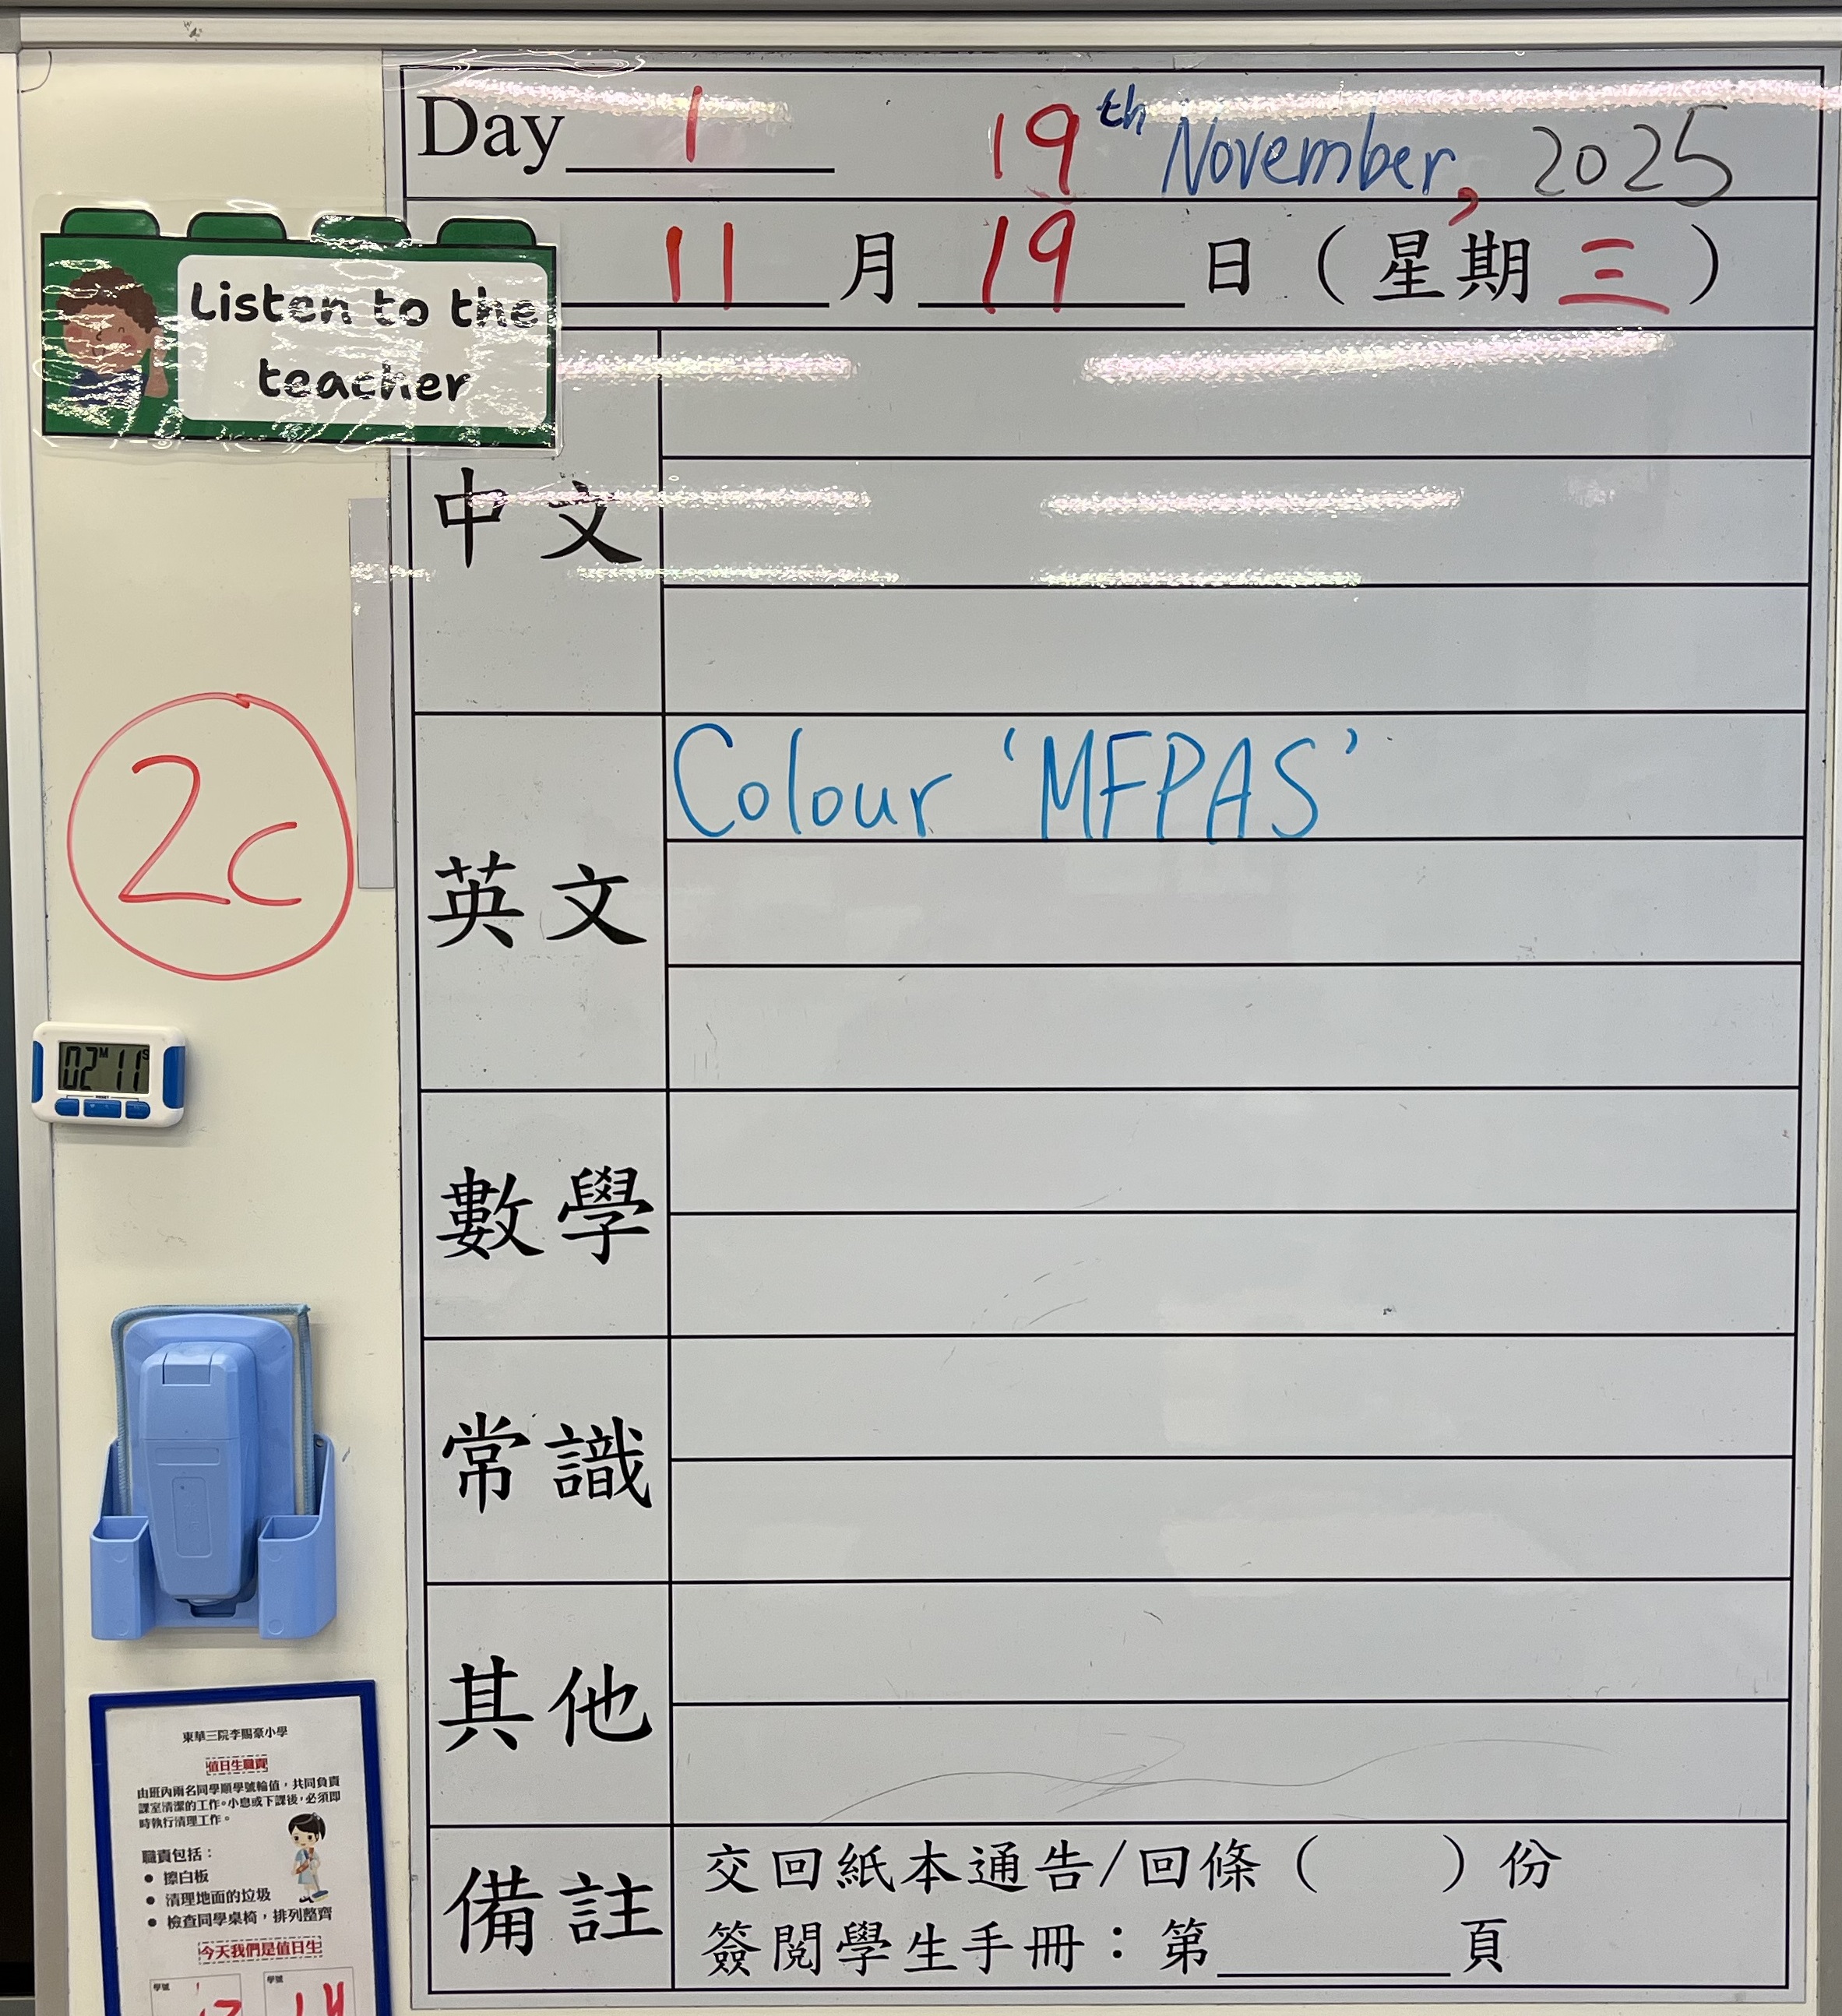 Day 1 19th November, 2025
11 月 19 日 (星期三)
Listen to the
teacher
中文
2c
英文 Colour 'MFPAS'
02M 11S
數學
常識
其他
備註 交回紙本通告/回條 ( ) 份
簽閱學生手冊：第 頁
東華三院李賜豪小學
值日生職責
由班內兩名同學順學號輪值，共同負責
課室清潔的工作。小息或下課後，必須即
時執行清理工作。
職責包括：
● 擦白板
● 清理地面的垃圾
● 檢查同學桌椅，排列整齊
今天我們是值日生
學號 學號